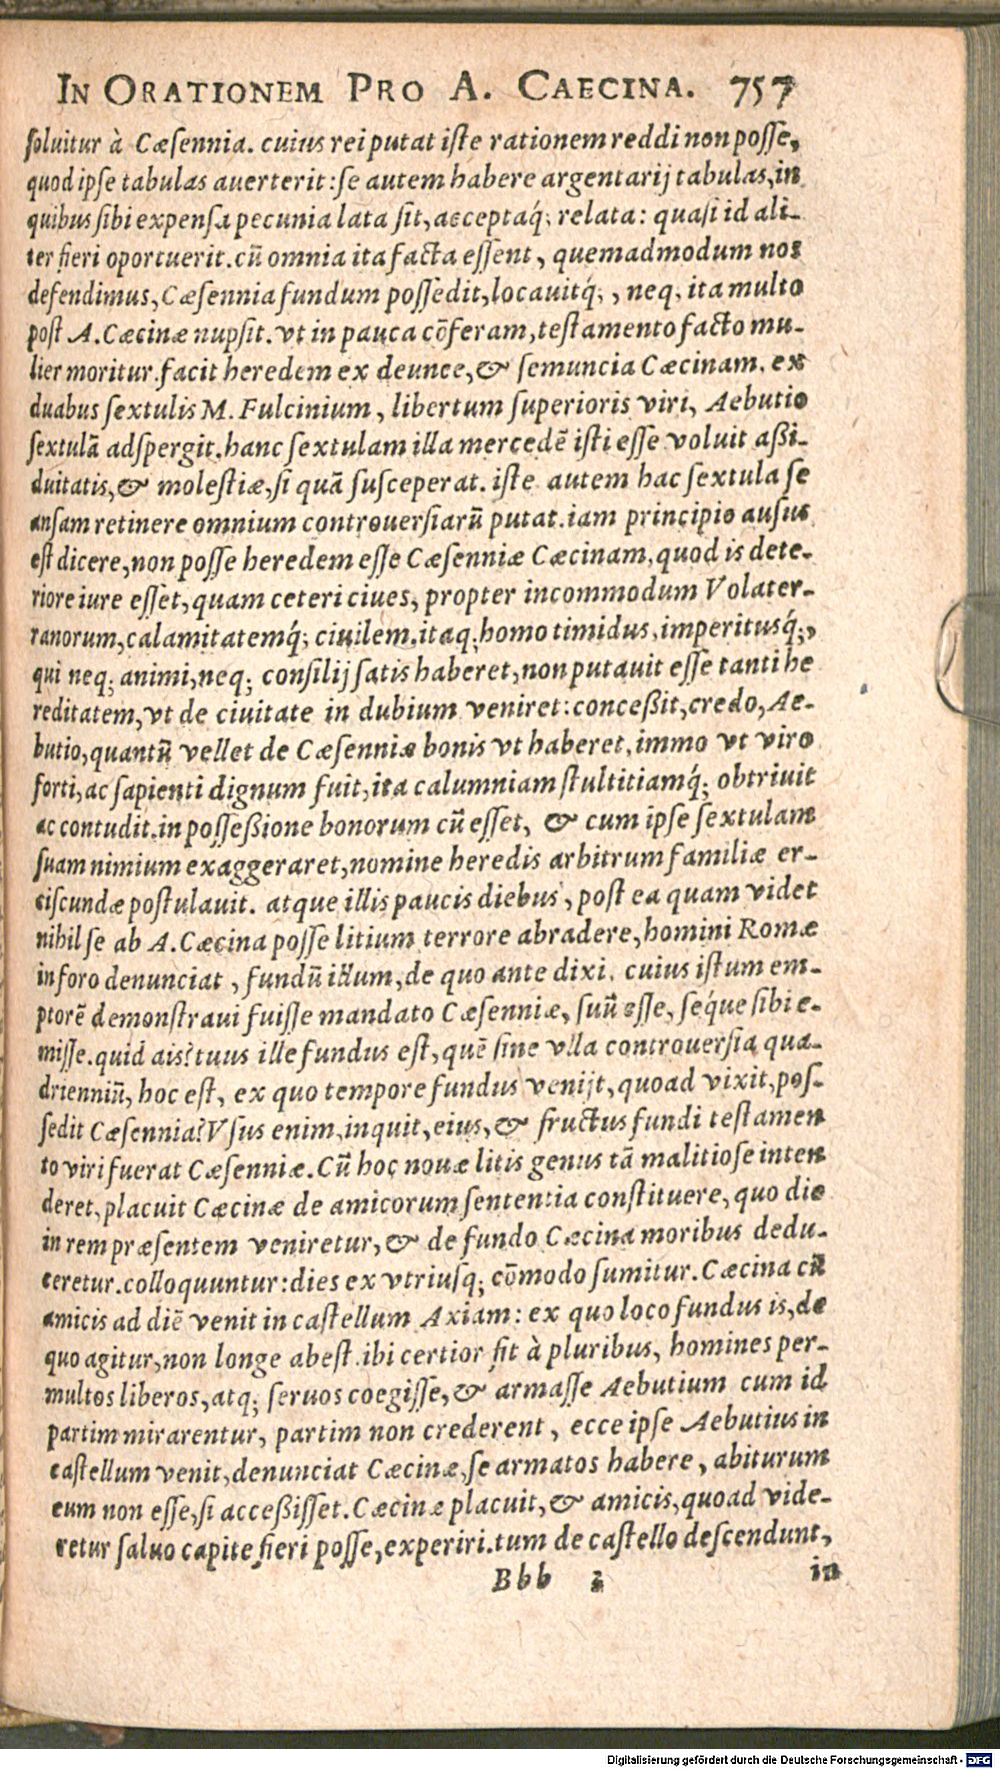 IN ORATIONEM PRO A. CAECINA. 757
soluitur à Cæsennia. cuius rei putat iste rationem reddi non posse,
quod ipse tabulas auerterit: se autem habere argentarij tabulas, in
quibus sibi expensa pecunia lata sit, acceptaq́; relata: quasi id ali-
ter fieri oportuerit. cũ omnia ita facta essent, quemadmodum nos
defendimus, Cæsennia fundum possedit, locauitq́;, neq; ita multo
post A. Cæcinæ nupsit. vt in pauca cõferam, testamento facto mu-
lier moritur. facit heredem ex deunce, & semuncia Cæcinam. ex
duabus sextulis M. Fulcinium, libertum superioris viri, Aebutio
sextulã adspergit. hanc sextulam illa mercedẽ isti esse voluit aßi-
duitatis, & molestiæ, si quã susceperat. iste autem hac sextula se
ansam retinere omnium controuersiarũ putat. iam principio ausus
est dicere, non posse heredem esse Cæsenniæ Cæcinam, quod is dete-
riore iure esset, quam ceteri ciues, propter incommodum Volater-
ranorum, calamitatemq́; ciuilem. itaq; homo timidus, imperitusq́;,
qui neq; animi, neq; consilij satis haberet, non putauit esse tanti he
reditatem, vt de ciuitate in dubium veniret: conceßit, credo, Ae-
butio, quantũ vellet de Cæsenniæ bonis vt haberet. immo vt viro
forti, ac sapienti dignum fuit, ita calumniam stultitiamq́; obtriuit
ac contudit. in posseßione bonorum cũ esset, & cum ipse sextulam
suam nimium exaggeraret, nomine heredis arbitrum familiæ er-
ciscundæ postulauit. atque illis paucis diebus, post ea quam videt
nihil se ab A. Cæcina posse litium terrore abradere, homini Romæ
in foro denunciat, fundũ illum, de quo ante dixi, cuius istum em-
ptorẽ demonstraui fuisse mandato Cæsenniæ, suũ esse, seq́ue sibi e-
misse. quid ais? tuus ille fundus est, quẽ sine vlla controuersia qua-
drienniũ, hoc est, ex quo tempore fundus venijt, quoad vixit, pos-
sedit Cæsennia? Vsus enim, inquit, eius, & fructus fundi testamen
to viri fuerat Cæsenniæ. Cũ hoc nouæ litis genus tã malitiose inten
deret, placuit Cæcinæ de amicorum sententia constituere, quo die
in rem præsentem veniretur, & de fundo Cæcina moribus dedu-
ceretur. colloquuntur: dies ex vtriusq; cõmodo sumitur. Cæcina cũ
amicis ad diẽ venit in castellum Axiam: ex quo loco fundus is, de
quo agitur, non longe abest. ibi certior fit à pluribus, homines per-
multos liberos, atq; seruos coegisse, & armasse Aebutium cum id
partim mirarentur, partim non crederent, ecce ipse Aebutius in
castellum venit, denunciat Cæcinæ, se armatos habere, abiturum
eum non esse, si acceßisset. Cæcinæ placuit, & amicis, quoad vide-
retur saluo capite fieri posse, experiri. tum de castello descendunt,
Bbb 2 in
Digitalisierung gefördert durch die Deutsche Forschungsgemeinschaft - DFG